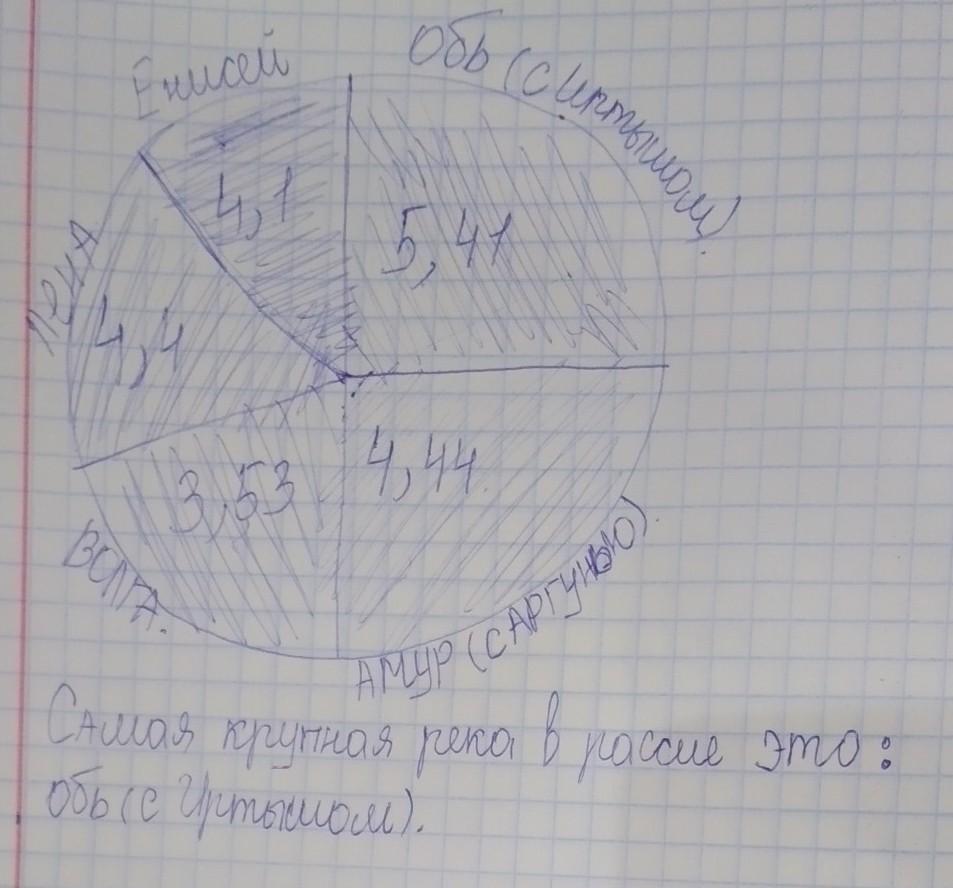 Енисей
Обь (с Иртышом).
4,1
5,41
Лена
4,4
3,53
4,44
Волга.
Амур (с Аргунью).
Самая крупная река в рассие это:
Обь (с Иртышом).